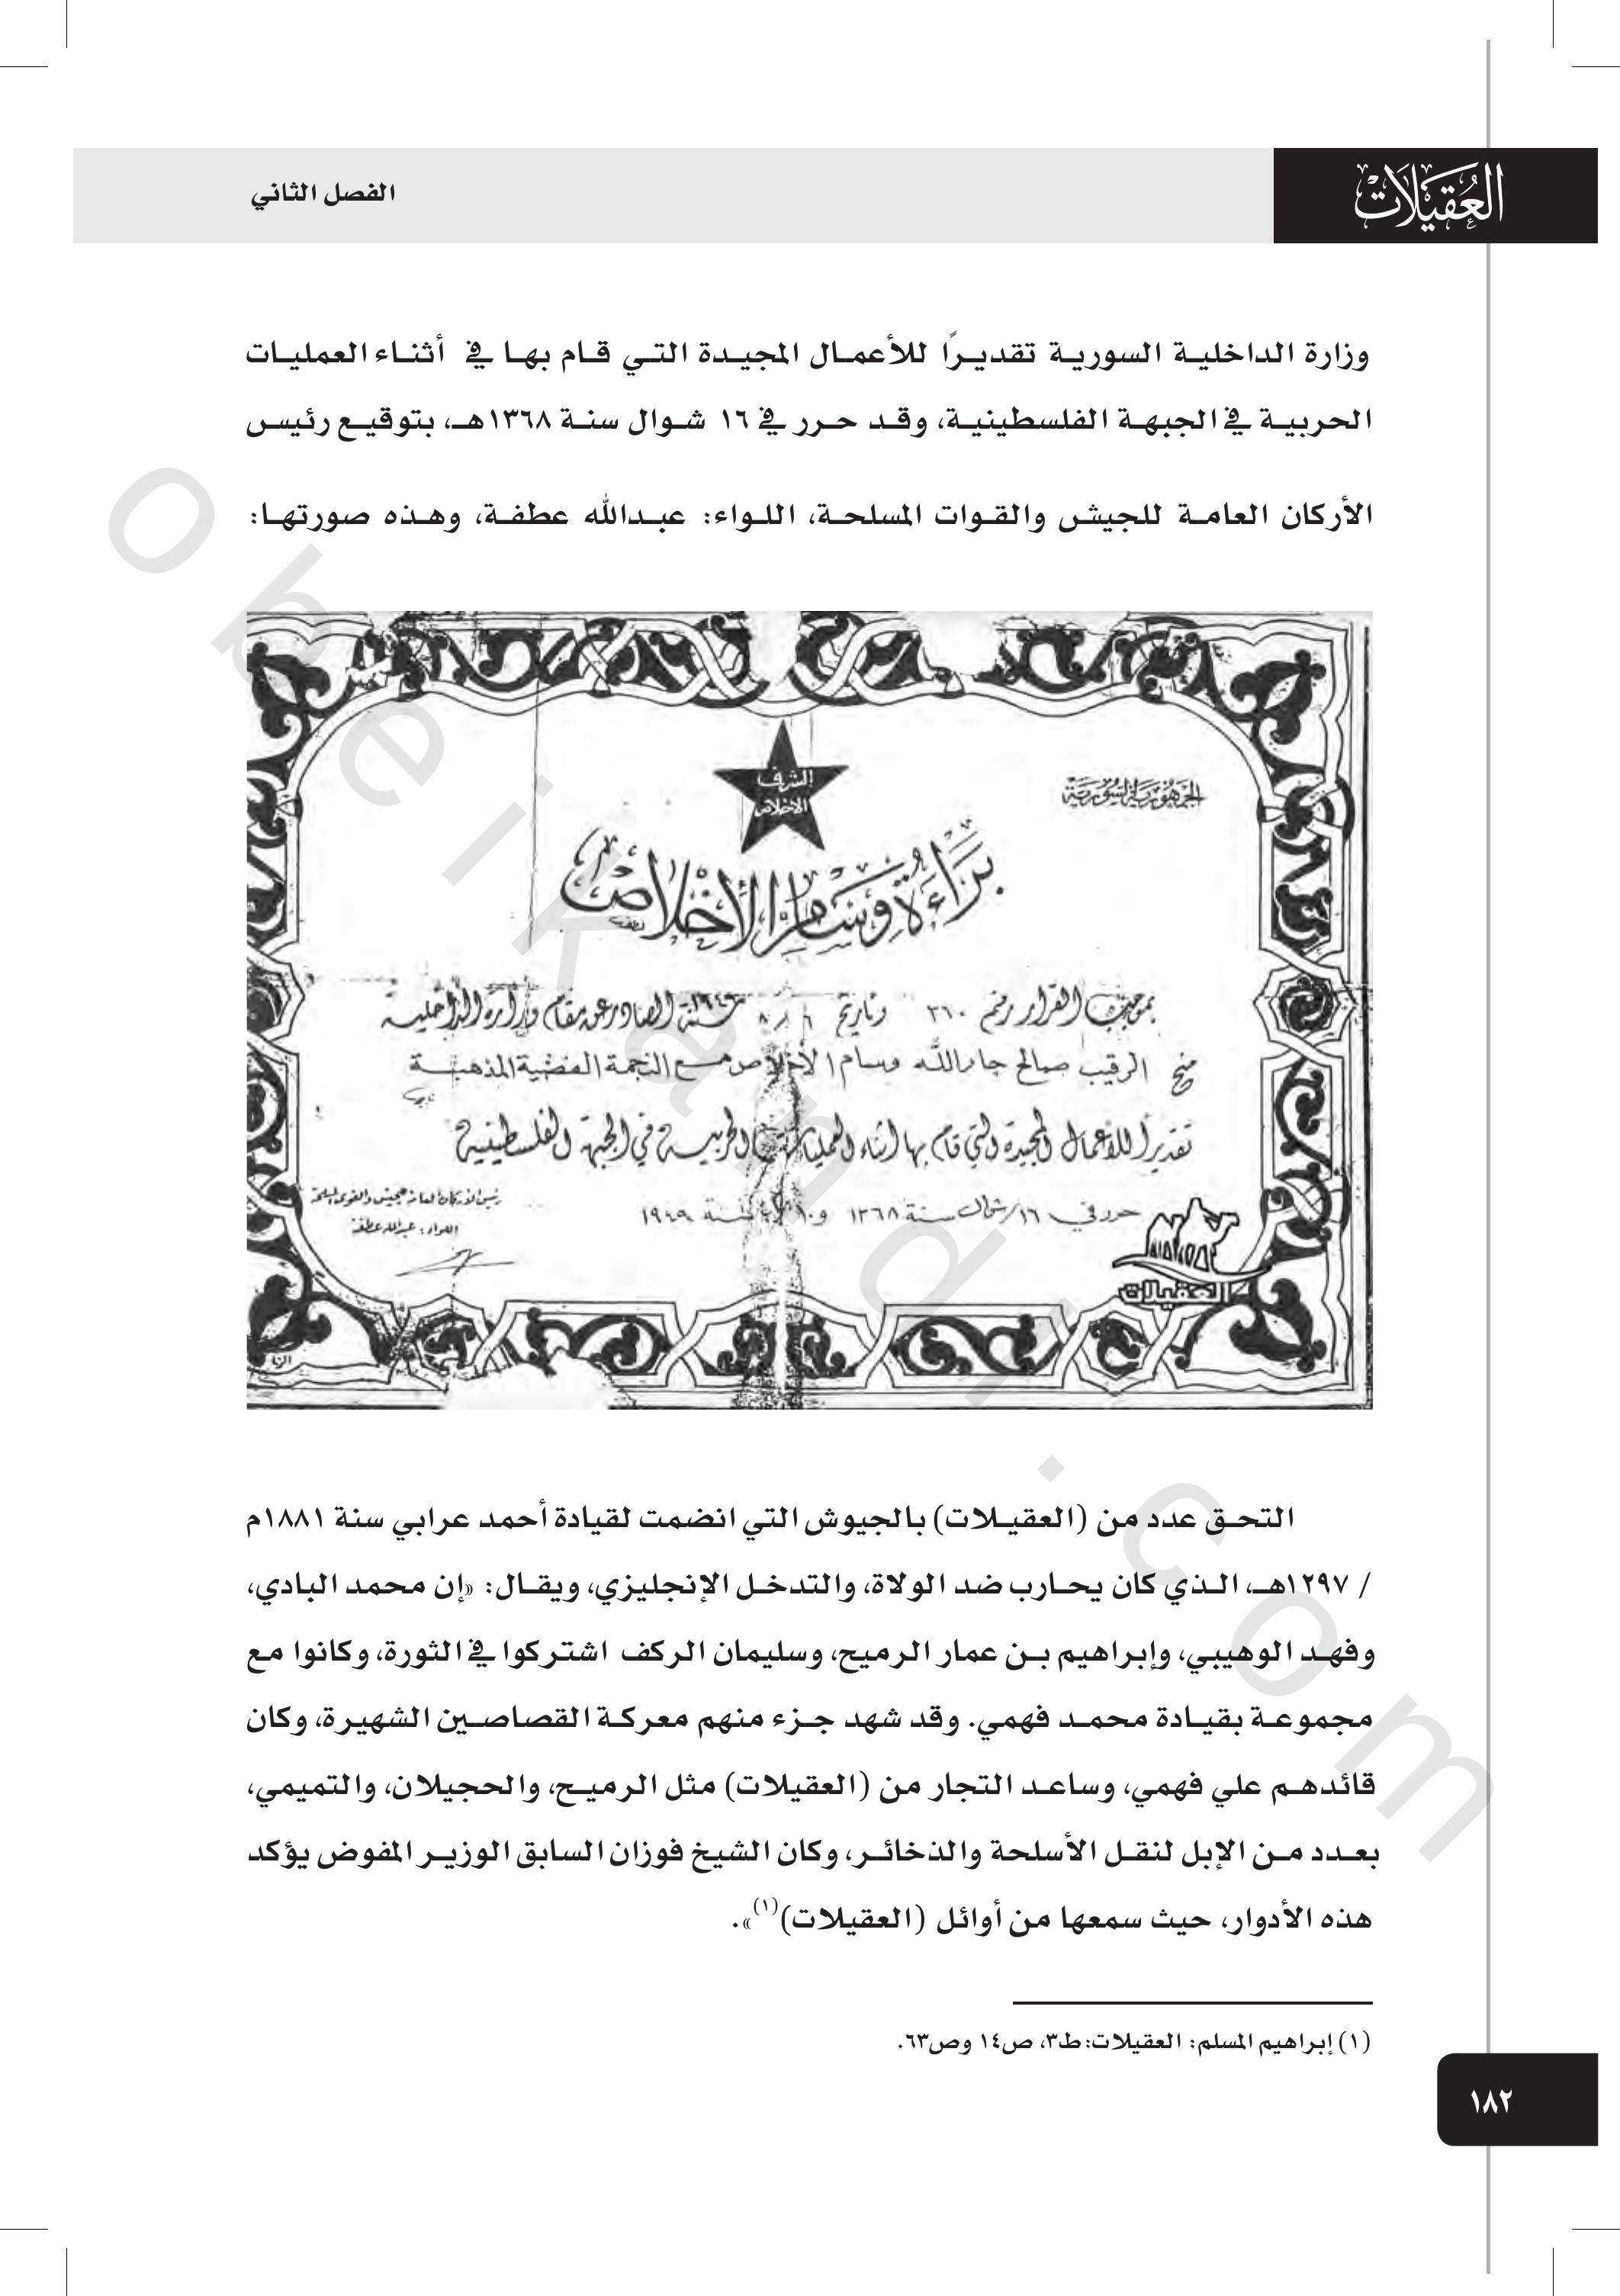 العُقيلات
الفصل الثاني
وزارة الداخلية السورية تقديرًا للأعمال المجيدة التي قام بها في أثناء العمليات
الحربية في الجبهة الفلسطينية، وقد حرر في ١٦ شوال سنة ١٣٦٨هـ، بتوقيع رئيس
الأركان العامة للجيش والقوات المسلحة، اللواء: عبدالله عطفة، وهذه صورتها:
الجمهورية السورية
الشرف
الاخلاص
براءة وسام الإخلاص
بموجب القرار رقم ٣٦٠ وتاريخ ٨/٦ سنة الصادر عن مقام وزارة الداخلية
منح الرقيب صالح جارالله وسام الاخلاص مع النجمة الفضية المذهبة
تقديراً للأعمال المجيدة التي قام بها اثناء العمليات الحربية في الجبهة الفلسطينية
حرر في ١٦/شوال سنة ١٣٦٨ و١٠ سنة ١٩٤٩
رئيس الاركان العامة للجيش والقوى المسلحة
اللواء: عبدالله عطفة
العقيلات
التحق عدد من (العقيلات) بالجيوش التي انضمت لقيادة أحمد عرابي سنة ١٨٨١م
/ ١٢٩٧هـ، الذي كان يحارب ضد الولاة، والتدخل الإنجليزي، ويقال: «إن محمد البادي،
وفهد الوهيبي، وإبراهيم بن عمار الرميح، وسليمان الركف اشتركوا في الثورة، وكانوا مع
مجموعة بقيادة محمد فهمي. وقد شهد جزء منهم معركة القصاصين الشهيرة، وكان
قائدهم علي فهمي، وساعد التجار من (العقيلات) مثل الرميح، والحجيلان، والتميمي،
بعدد من الإبل لنقل الأسلحة والذخائر، وكان الشيخ فوزان السابق الوزير المفوض يؤكد
هذه الأدوار، حيث سمعها من أوائل (العقيلات)(١)».
(١) إبراهيم المسلم: العقيلات: ط٣، ص١٤ وص٦٣.
١٨٢
obeikandi.com